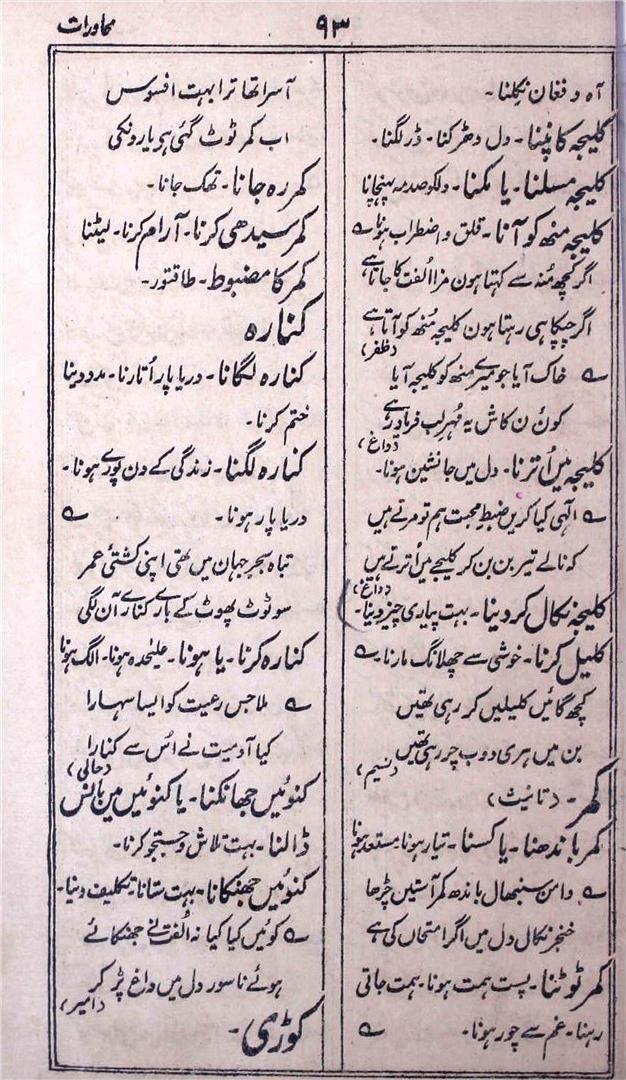 ۹۳
محاورات
آہ و فغان نکلنا۔
کلیجہ کانپنا۔ دل دھڑکنا۔ ڈر لگنا۔
کلیجہ مسلنا۔ یا ملنا۔ دلکو صدمہ پہنچانا
کلیجہ منھ کو آنا۔ قلق و اضطراب ہونا ؎
اگر کچھ مُنہ سے کہتا ہون مزا اُلفت کا جاتا ہے
اگر چپکا ہی رہتا ہون کلیجہ مُنھ کو آتا ہے
(ظفر)
؎ خاک آیا جو میرے منھ کو کلیجہ آیا
کون کاش یہ مُہر لب فریاد رہے
(داغ)
کلیجہ میں اُترنا۔ دل میں جانشین ہونا۔
؎ الٰہی کیا کریں ضبطِ محبت ہم تو مرتے ہیں
کہ نالے تیر بن بن کر کلیجے میں اُترتے ہیں
(داغ)
کلیجہ نکال کر دینا۔ بہت پیاری چیز دینا۔
کلیل کرنا۔ خوشی سے چھلانگ مارنا۔ ؎
کچھ گائیں کلیلیں کر رہی تھیں
بن میں ہری دوب چر رہی تھیں
(نسیم)
کمر۔ (تانیث)
کمر باندھنا۔ یا کسنا۔ تیار ہونا۔ مستعد ہونا
؎ دامن سنبھال باندھ کمر آستیں چڑھا
خنجر نکال دل میں اگر امتحاں کی ہے
کمر ٹوٹنا۔ پست ہمت ہونا۔ ہمت جاتی
رہنا۔ غم سے چور ہونا۔ ؎
آسرا تھا ترا بہت افسوس
اب کمر ٹوٹ گئی ہی یارونکی
کمر رہ جانا۔ تھک جانا۔
کمر سیدھی کرنا۔ آرام کرنا۔ لیٹنا
کمر کا مضبوط۔ طاقتور۔
کنارہ
کنارہ لگانا۔ دریا پار اُتارنا۔ مدد دینا
ختم کرنا۔
کنارہ لگنا۔ زندگی کے دن پورے ہونا۔
دریا پار ہونا۔ ؎
تباہ بحر جہان میں تھی اپنی کشتئ عمر
سو ٹوٹ پھوٹ کے بارے کنارے آن لگی
کنارہ کرنا۔ یا ہونا۔ علیٰحدہ ہونا۔ الگ ہونا
؎ ملا جس رعیت کو ایسا سہارا
کیا آدمیت نے اُس سے کنارا
(حالی)
کنوئیں جھانکنا۔ یا کنوئیں میں بانس
ڈالنا۔ بہت تلاش و جستجو کرنا۔
کنوئیں جھنکانا۔ بہت ستانا تکلیف دینا۔
؎ کوئیں کیا کیا نہ اُلفت نے جھنکائے
ہوئے ناسور دل میں داغ پڑ کر
(امیر)
کوڑی۔